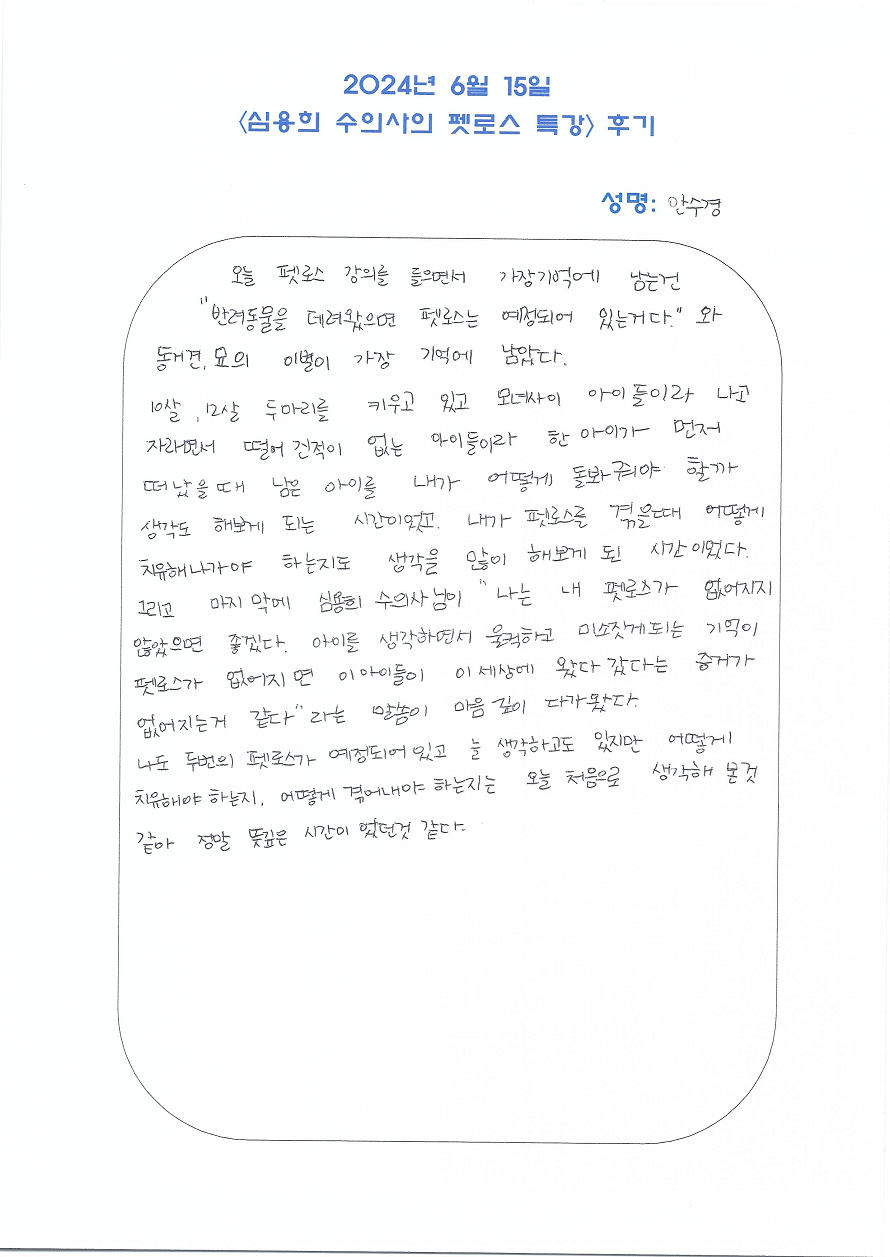 2024년 6월 15일
<심용희 수의사의 펫로스 특강> 후기
성명: 안수경
오늘 펫로스 강의를 들으면서 가장기억에 남는건
"반려동물을 데려왔으면 펫로스는 예정되어 있는거다." 와
동거견,묘의 이별이 가장 기억에 남았다.
10살, 12살 두마리를 키우고 있고 모녀사이 아이들이라 나고
자라면서 떨어진적이 없는 아이들이라 한 아이가 먼저
떠났을때 남은 아이를 내가 어떻게 돌봐줘야 할까
생각도 해보게 되는 시간이었고. 내가 펫로스를 겪을때 어떻게
치유해나가야 하는지도 생각을 많이 해보게 된 시간이었다.
그리고 마지막에 심용희 수의사님이 "나는 내 펫로스가 없어지지
않았으면 좋겠다. 아이를 생각하면서 울컥하고 미소짓게되는 기억이
펫로스가 없어지면 이아이들이 이세상에 왔다갔다는 증거가
없어지는거 같다"라는 말씀이 마음깊이 다가왔다.
나도 두번의 펫로스가 예정되어있고 늘 생각하고도 있지만 어떻게
치유해야 하는지, 어떻게 겪어내야 하는지는 오늘 처음으로 생각해 본것
같아 정말 뜻깊은 시간이 었던것 같다.